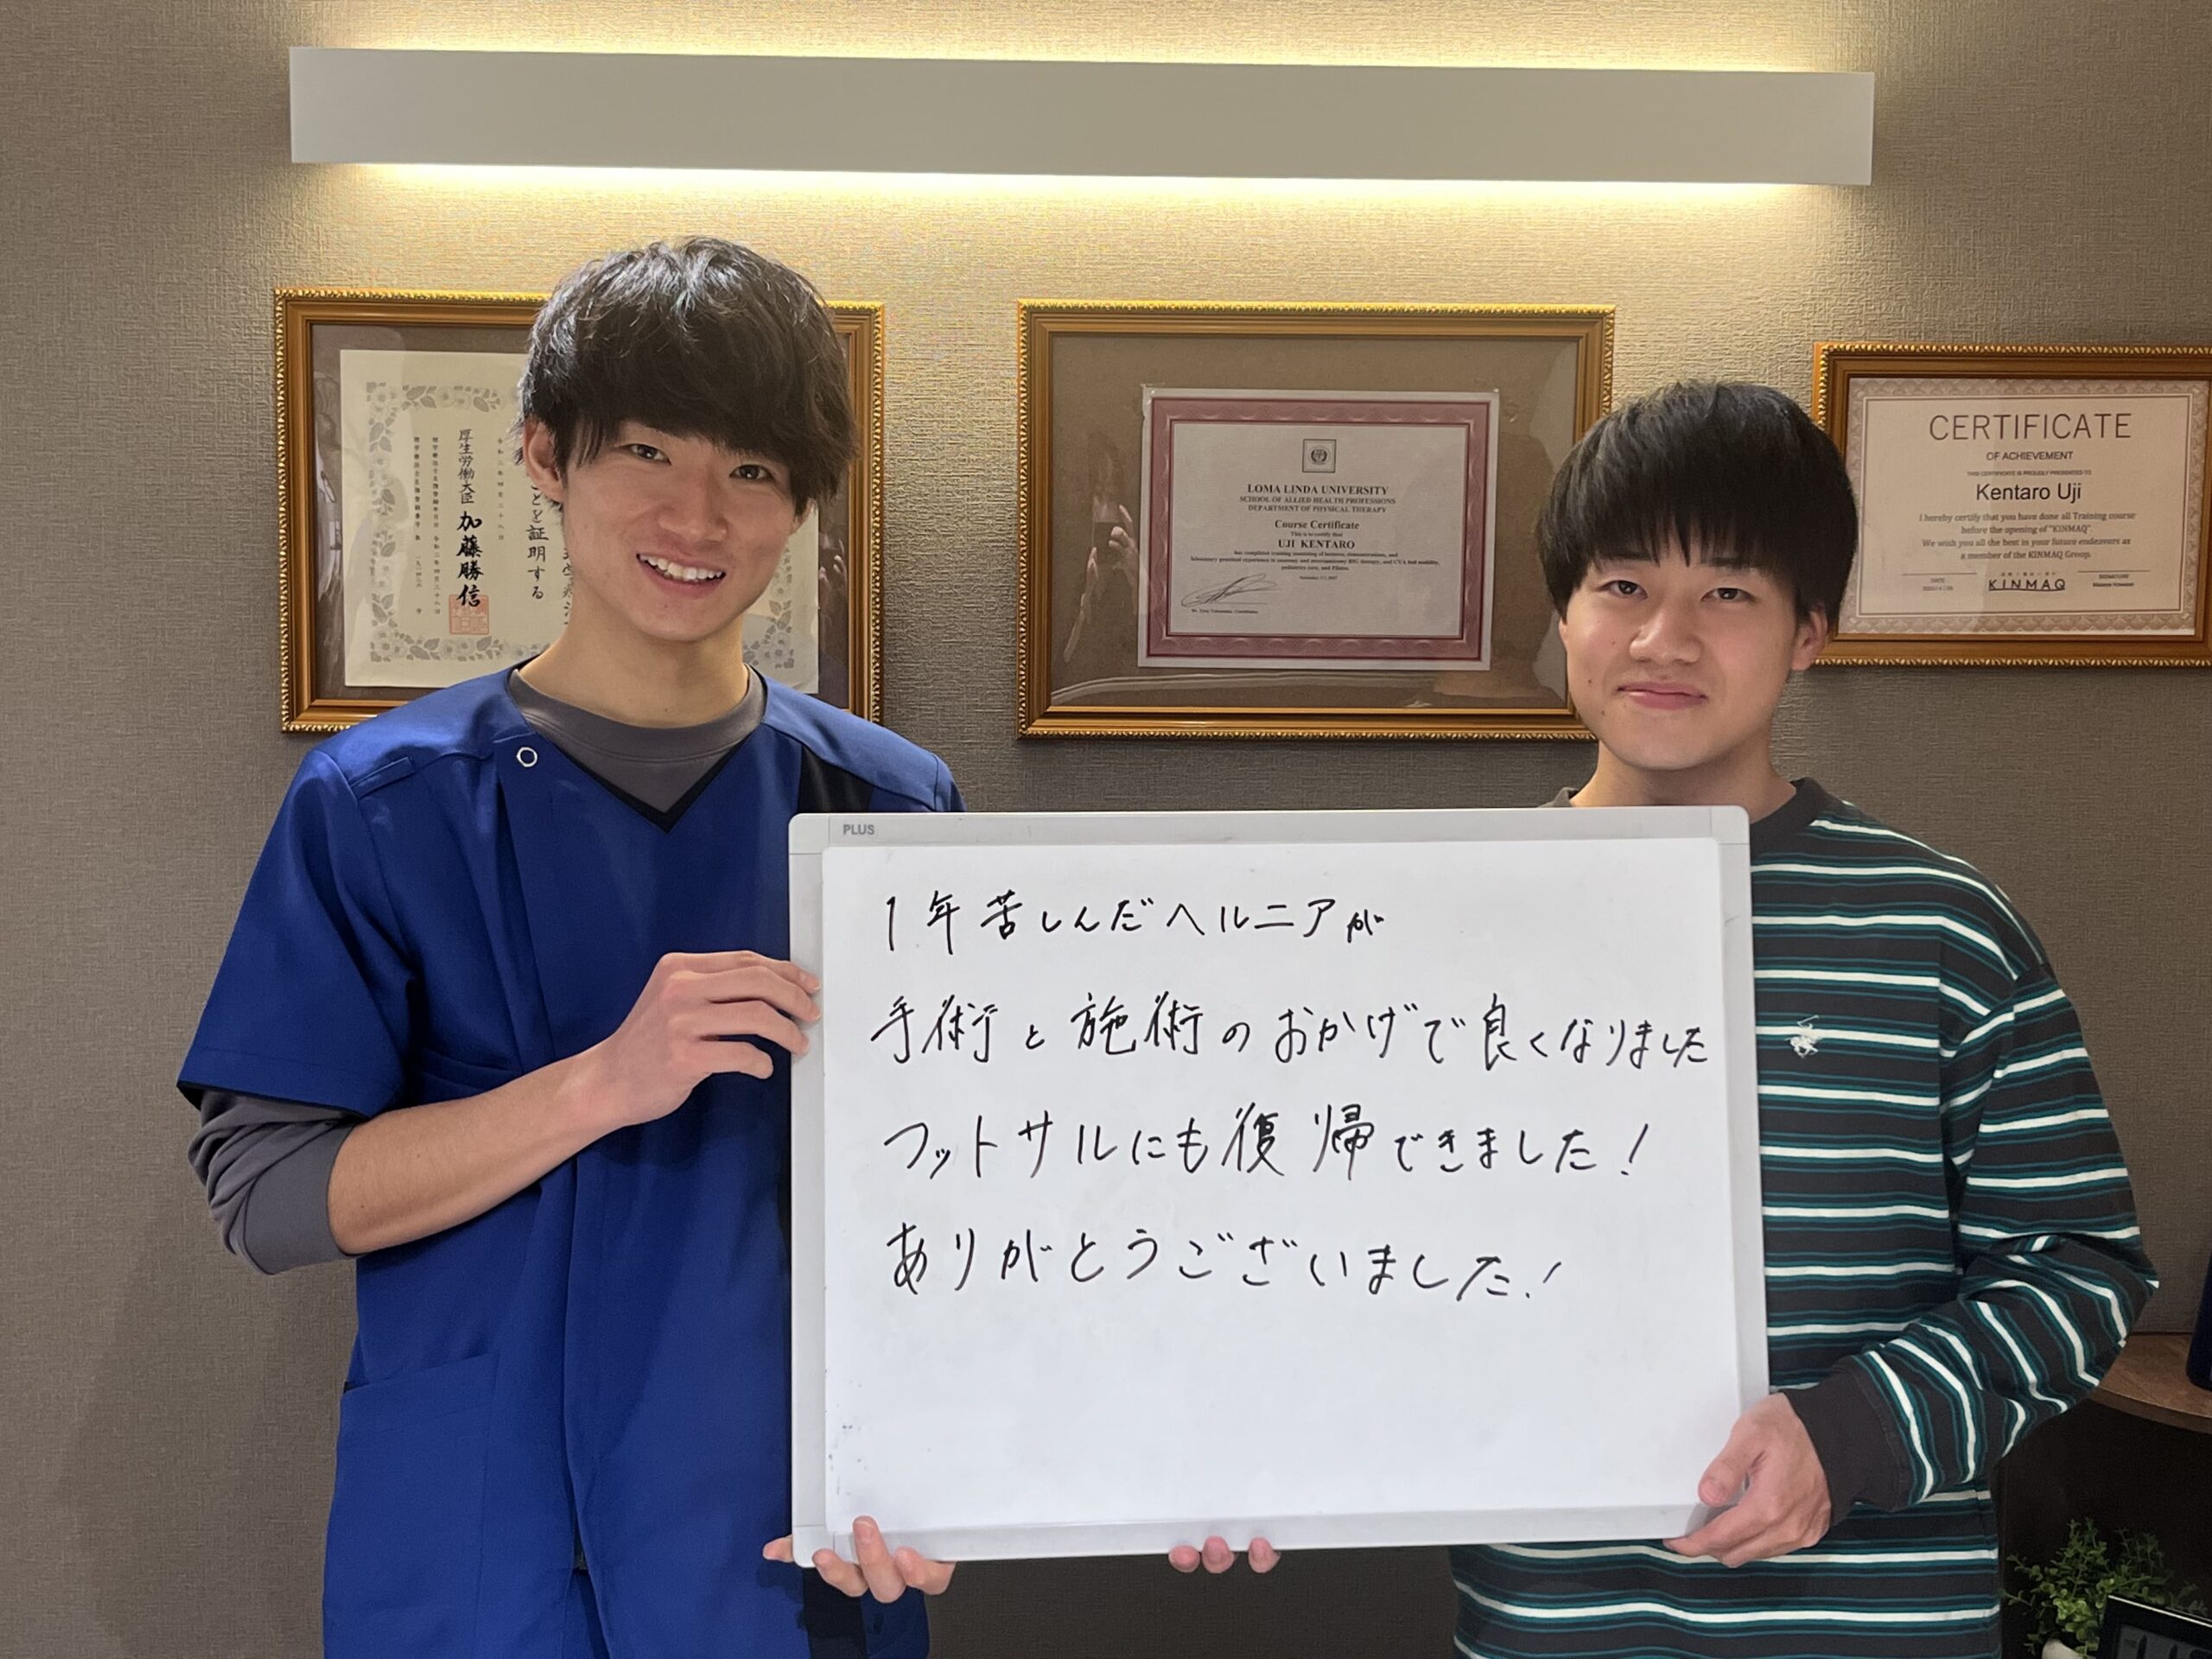 ことを証明する
厚生労働大臣 加藤勝信
LOMA LINDA UNIVERSITY
SCHOOL OF ALLIED HEALTH PROFESSIONS
DEPARTMENT OF PHYSICAL THERAPY
Course Certificate
This is to certify that
UJI KENTARO
CERTIFICATE
OF ACHIEVEMENT
THIS CERTIFICATE IS PROUDLY PRESENTED TO
Kentaro Uji
I hereby certify that you have done all Training course
before the opening of "KINMAQ".
We wish you all the best in your future endeavors as
a member of the KINMAQ Group.
DATE
KINMAQ
PLUS
1年苦しんだヘルニアが
手術と施術のおかげで良くなりました
フットサルにも復帰できました!
ありがとうございました!